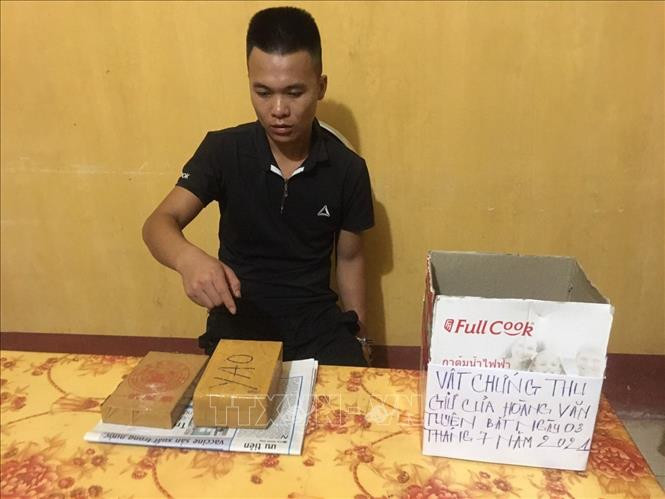 Full Cook
กาต้มน้ำไฟฟ้า
VẬT CHỨNG THU
GIỮ CỦA HOÀNG VĂN
TUYÊN BẮT NGÀY 03
THÁNG 7 NĂM 2021
YAO
ưu tiên
vaccine sản xuất trong nước
TTXVN